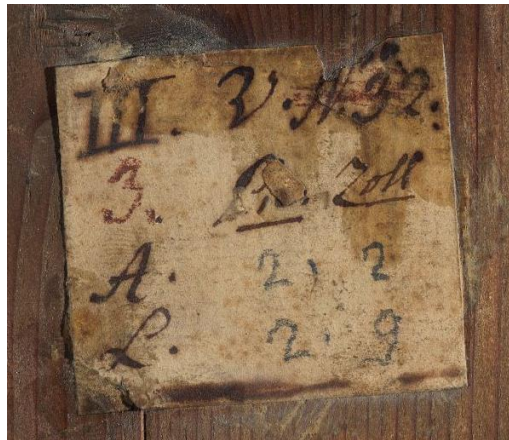 III. V. N. 92.
3. Zoll
A. 2, 2
L. 2. 9